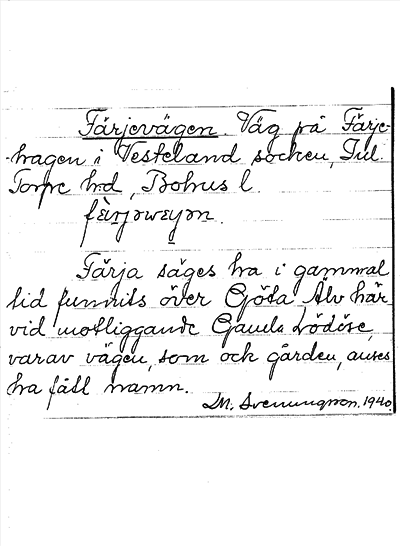 Färjevägen. Väg på Färje-
-hagen i Vesterland socken, Inl.
Torpe hrd, Bohus l.
Färja säges ha i gammal
tid funnits över Göta Älv här
vid motliggande Gamla Lödöse,
varav vägen, som och gården, anses
ha fått namn.
M. Svenungsson. 1940.